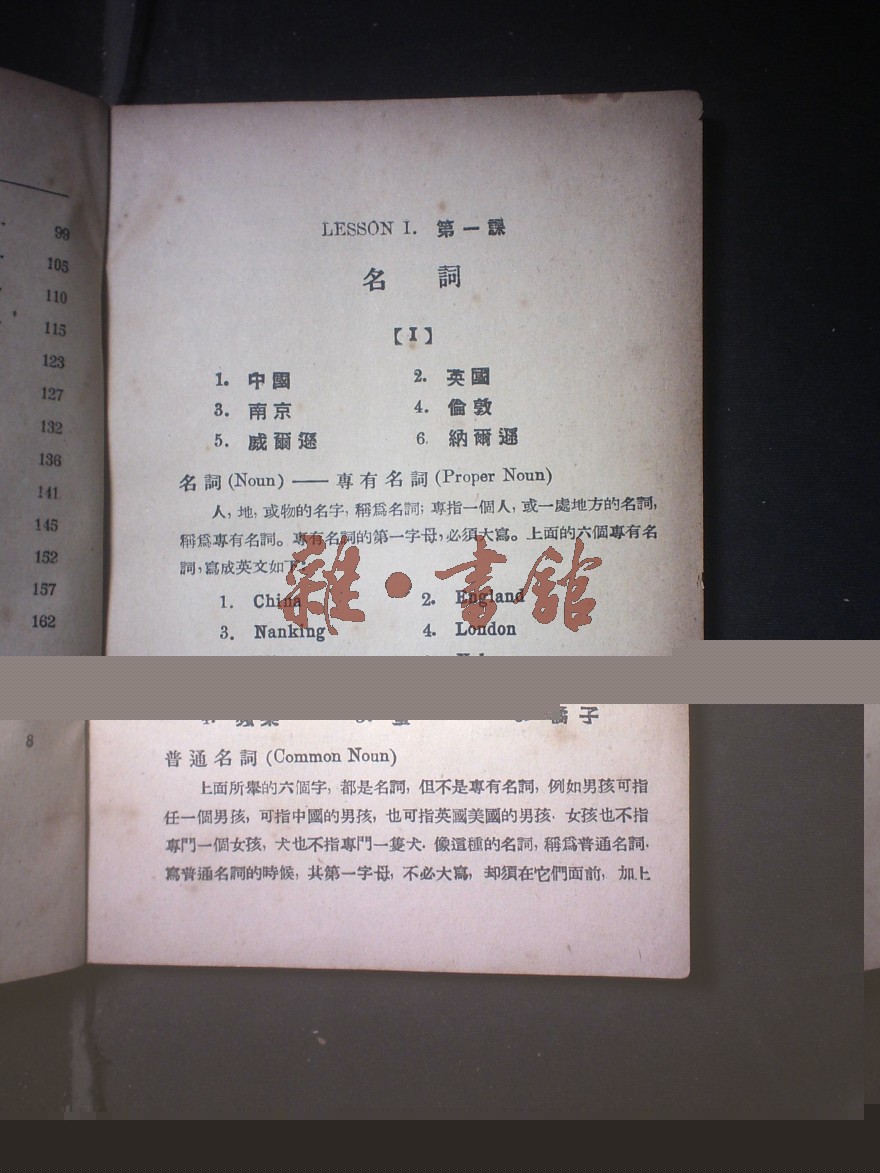 99
105
110
115
123
127
132
136
141
145
152
157
162
8
LESSON I. 第一課
名 詞
【I】
1. 中國 2. 英國
3. 南京 4. 倫敦
5. 威爾遜 6. 納爾遜
名詞 (Noun) —— 專有名詞 (Proper Noun)
人, 地, 或物的名字, 稱爲名詞; 專指一個人, 或一處地方的名詞,
稱爲專有名詞。專有名詞的第一字母, 必須大寫。上面的六個專有名
詞, 寫成英文如下:
1. China 2. England
3. Nanking 4. London
雜·書舘
橘子
普通名詞 (Common Noun)
上面所舉的六個字, 都是名詞, 但不是專有名詞, 例如男孩可指
任一個男孩, 可指中國的男孩, 也可指英國美國的男孩. 女孩也不指
專門一個女孩, 犬也不指專門一隻犬. 像這種的名詞, 稱爲普通名詞.
寫普通名詞的時候, 其第一字母, 不必大寫, 却須在它們面前, 加上